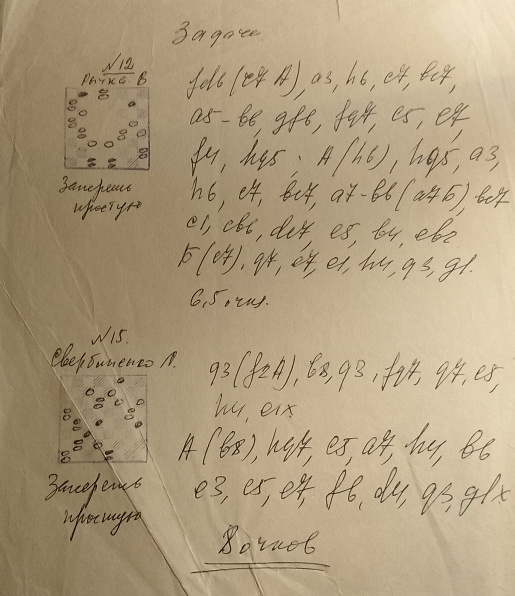 Задача
№12
Рычка. В
fd6 (c7 A), a3, h6, c7, bc7,
a5-b6, gf6, fg7, c5, e7,
f4, hg5. A (h6), hg5, a3,
h6, c7, bc7, a7-b6 (a7 Б), bc7
c1, cb6, de7, e5, b4,
Б (c7), g7, e7, e1, h4, g3, g1.
6,5 очк.
Запереть
простую
№15.
Свербиненко
g3 (f2 A), b8, g3, fg7, g7, e8,
h4, e1x
A (b8), hg7, c5, a7, h4, b6
e3, c5, e7, f6, d4, g3, g1x
Запереть
простую
8 очков